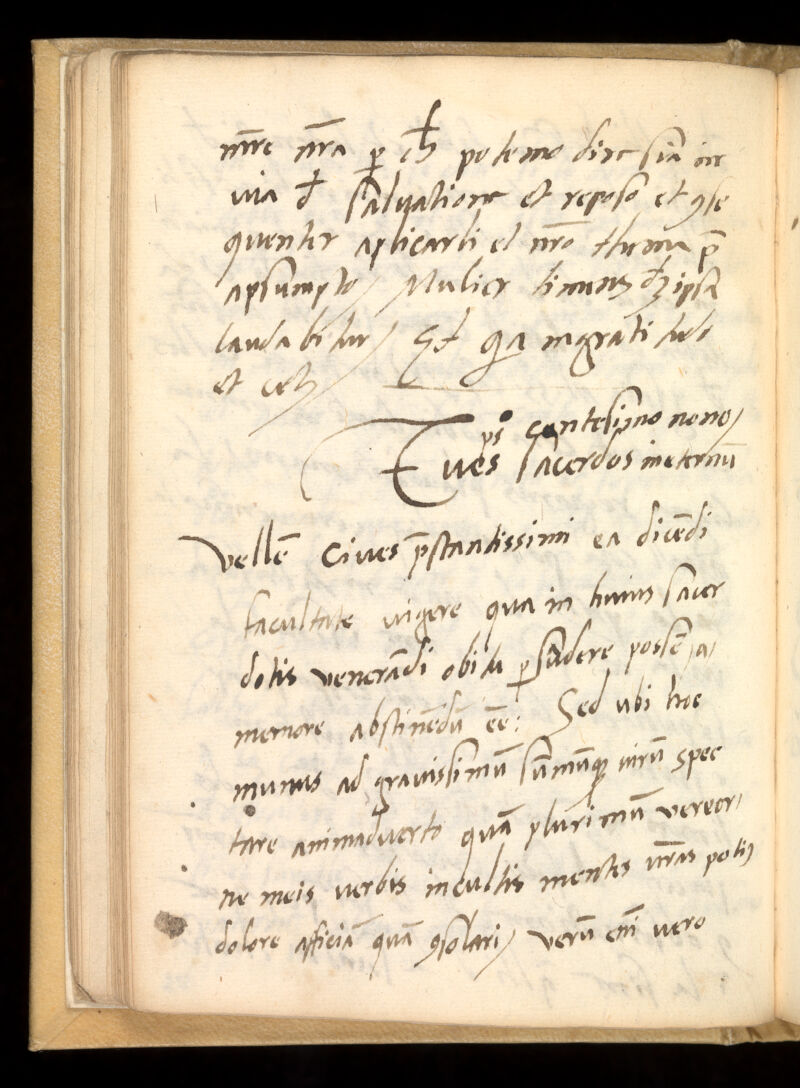 nr̄re nr̄a p̱ ch potemo dire sia in
uia d salvatione et reposo et 9se
quenter aplicarli el nr̄o thema p̄
apsumpto / Mulier timens ipsa
laudabitur / Et q̄a ingratitudo
et cet
ps centesimo nono /
Tu es sacerdos in eternū
Vellē Ciues p̄stantissimi ea dicēdi
facultate uigere qua in huius sacer
dotis venerādi obitu p̱suadere possē, a,
memore abstinēdū eē: Sed ubi hoc
munus ad grauissimū sūmūq̨ uirū spec
tare animaduerto quā plurimū vereor,
ne meis verbis incultis mentes ur̄as potiꝰ
dolore afficiā quā 9solari / verū enī vero